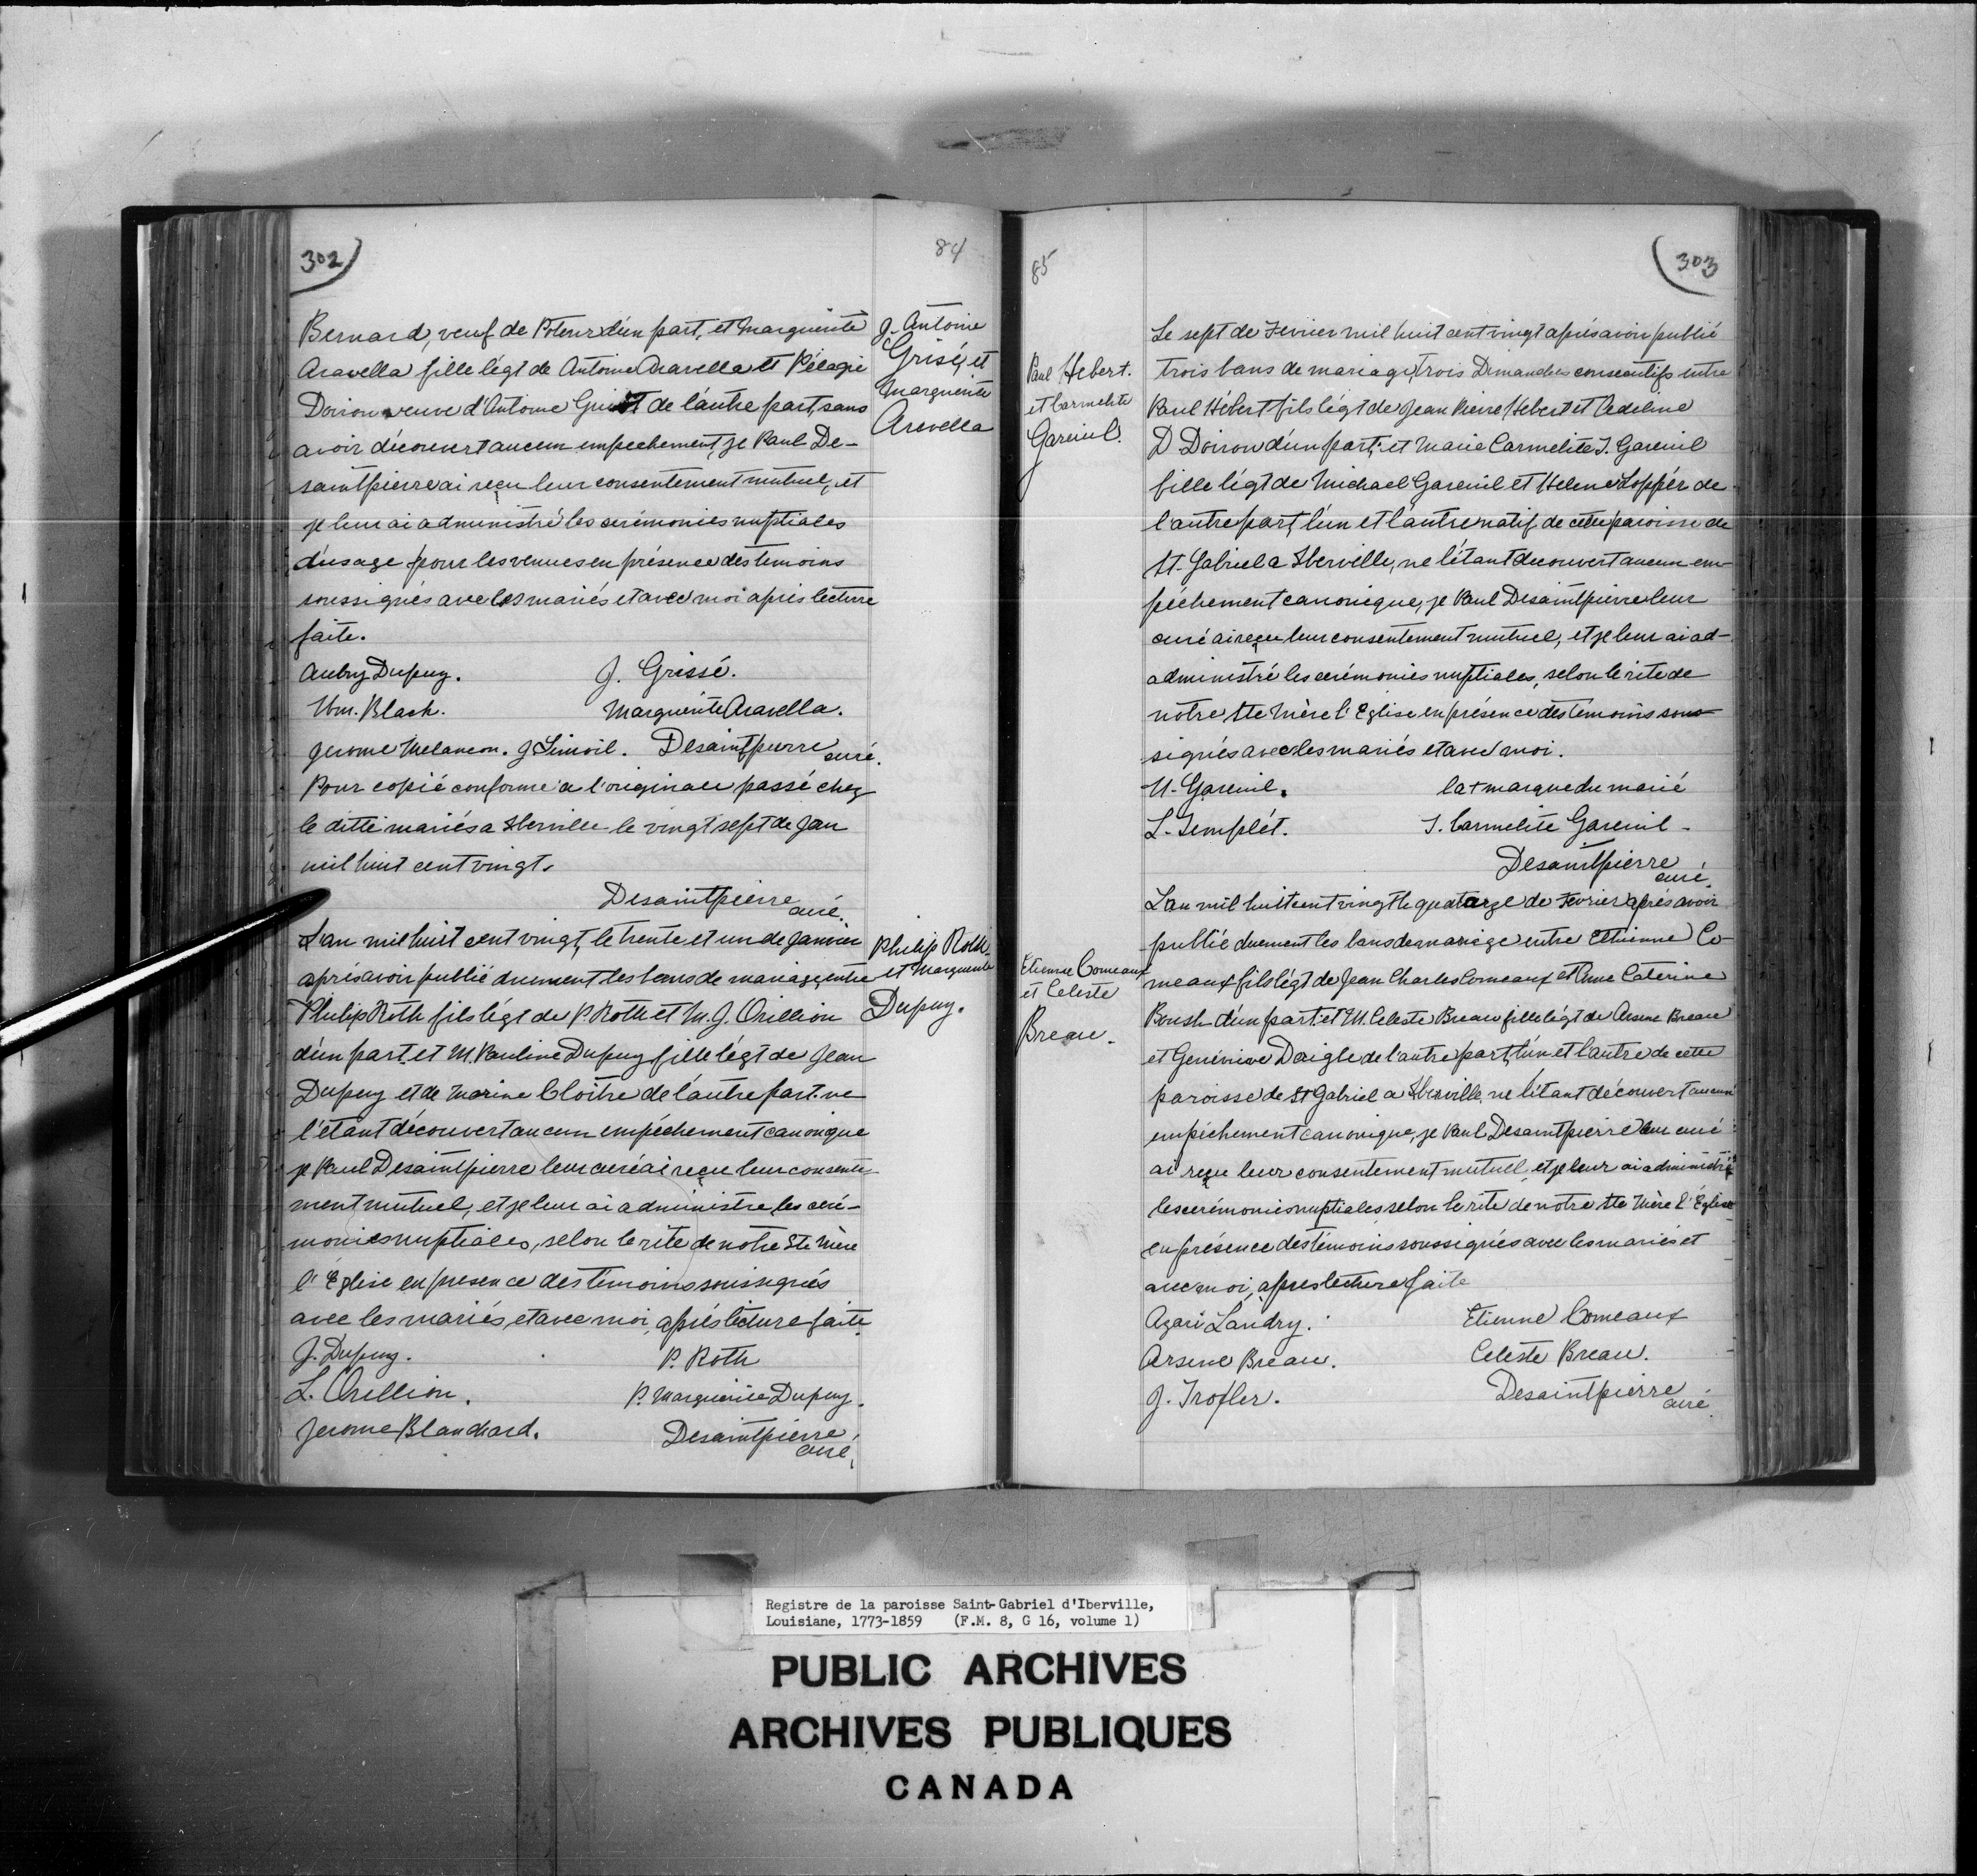 302
84
Bernard, veuf de Poteur d'un part, et Marguerite
Aravella fille légt de Antoine Aravella et Pélagie
Doiron veuve d'Antoine de l'autre part, sans
avoir découvert aucun empechement, je Paul De-
saintpierre ai reçu leur consentement mutuel, et
je leur ai administré les cerémonies nuptiales
d'usage pour les veuves en présence des temoins
soussignés avec les mariés et avec moi après lecture
faite.
J. Antoine
Grisé, et
Marguerite
Arevella
Aubry Dupuy. J. Grissé.
Wm. Black. Marguerite Aravella.
Jerome Melancon. J. Desaintpierre
curé.
Pour copié conforme a l'originale passé chez
le ditte mariés a Iberville le vingt sept de Jan
mil huit cent vingt.
Desaintpierre
curé.
L'an mil huit cent vingt, le trente et un de Janvier
après avoir publié duement les bans de mariage, entre
Philip Roth fils légt de P. Roth et M. J. Orillion
d'un part. et M. Pauline Dupuy fille légt de Jean
Dupuy et de Marine Cloitre de l'autre part. ne
l'étant découvert aucun empéchement canonique
je Paul Desaintpierre leur curé ai reçu leur consente-
ment mutuel, et je leur ai administre les ceré-
monies nuptiales, selon le rite de notre Ste Mère
l'Église en presence des témoins soussignés
avec les mariés, et avec moi, après lecture faite
Philip Roth
et Marguerite
Dupuy.
J. Dupuy. P. Roth
L. Orellion. P. Marguerite Dupuy.
Jerome Blanchard. Desaintpierre
curé.
85
303
Paul Hebert.
et Carmelite
Gareuil.
Le sept de Fevrier mil huit cent vingt après avoir publié
trois bans de mariage, trois Dimanches consecutifs entre
Paul Hébert fils légt de Jean Pierre Hebert et Adeline
D Doiron d'un part, et Marie Carmelite I. Gareuil
fille légt de Michael Gareuil et Helene Loppér de
l'autre part, l'un et l'autre natif de cette paroisse de
St. Gabriel a Iberville, ne l'étant decouvert aucun em-
péchement canonique, je Paul Desaintpierre leur
curé ai reçu leur consentement mutuel, et je leur ai ad-
administré les cerémonies nuptiales, selon le rite de
notre Ste Mère l'Eglise en présence des témoins sous-
signés avec les mariés et avec moi.
U. Gareuil. la + marque du marié
L. Templét. I. Carmelite Gareuil
Desaintpierre
curé.
Etienne Comeaux
et Celeste
Breau.
L'an mil huit cent vingt le quatorze de Fevrier après avoir
publié duement les bans de mariage entre Ethienne Co-
meaux fils légt de Jean Charles Comeaux et Anne Caterine
Boush d'un part. et M. Celeste Breau fille légt de Arsene Breau
et Genévieve Daigle de l'autre part, l'un et l'autre de cette
paroisse de St Gabriel a Iberville, ne l'étant découvert aucun
empéchement canonique, je Paul Desaintpierre leur curé
ai reçu leur consentement mutuel et je leur ai administré
les cerémonies nuptiales selon le rite de notre Ste Mère l'Église
en présence des témoins soussignés avec les mariés et
avec moi, apres lecture faite
Azari Landry. Etienne Comeaux
Arsene Breau. Celeste Breau.
J. Trofler. Desaintpierre
curé.
Registre de la paroisse Saint-Gabriel d'Iberville,
Louisiane, 1773-1859 (F.M. 8, G 16, volume 1)
PUBLIC ARCHIVES
ARCHIVES PUBLIQUES
CANADA